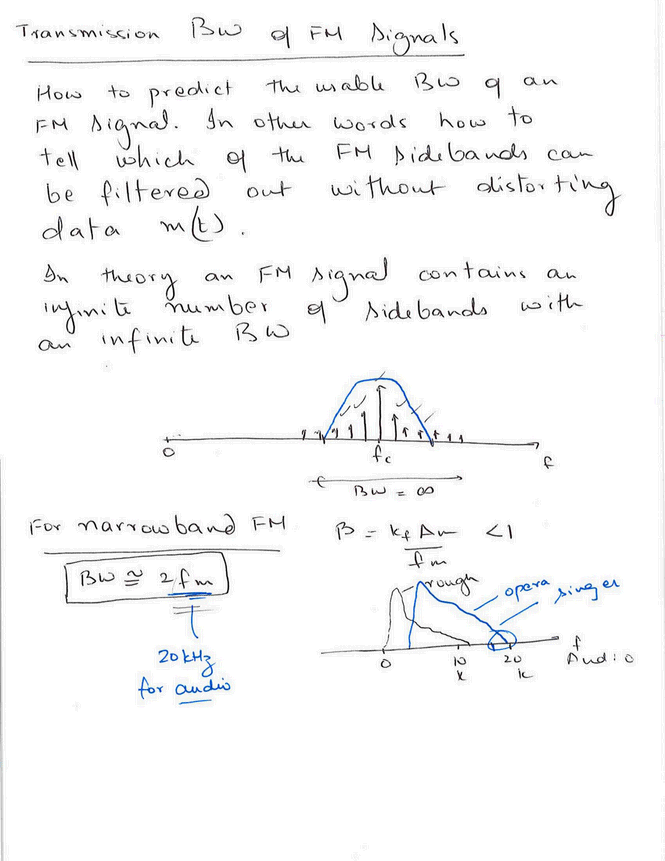 Transmission BW of FM Signals
How to predict the usable BW of an
FM signal. In other words how to
tell which of the FM sidebands can
be filtered out without distorting
data m(t).
In theory an FM signal contains an
infinite number of sidebands with
an infinite BW
0 fc f
BW = ∞
For narrowband FM β = kf Am / fm < 1
BW ≅ 2 fm
rough opera singer
20 kHz
for audio
0 10 k 20 k f Audio